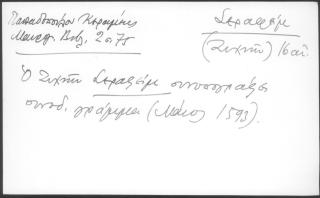 Παπαδοπούλου Κεραμέως
Μαυρογ. Βιβλ. 2 σ. 75
Σεραφείμ
(Συκῆς) 16 αι.
Ὁ Συκῆς Σεραφείμ συνυπογράφει
συνοδ. γράμμα (Μάιος 1593).